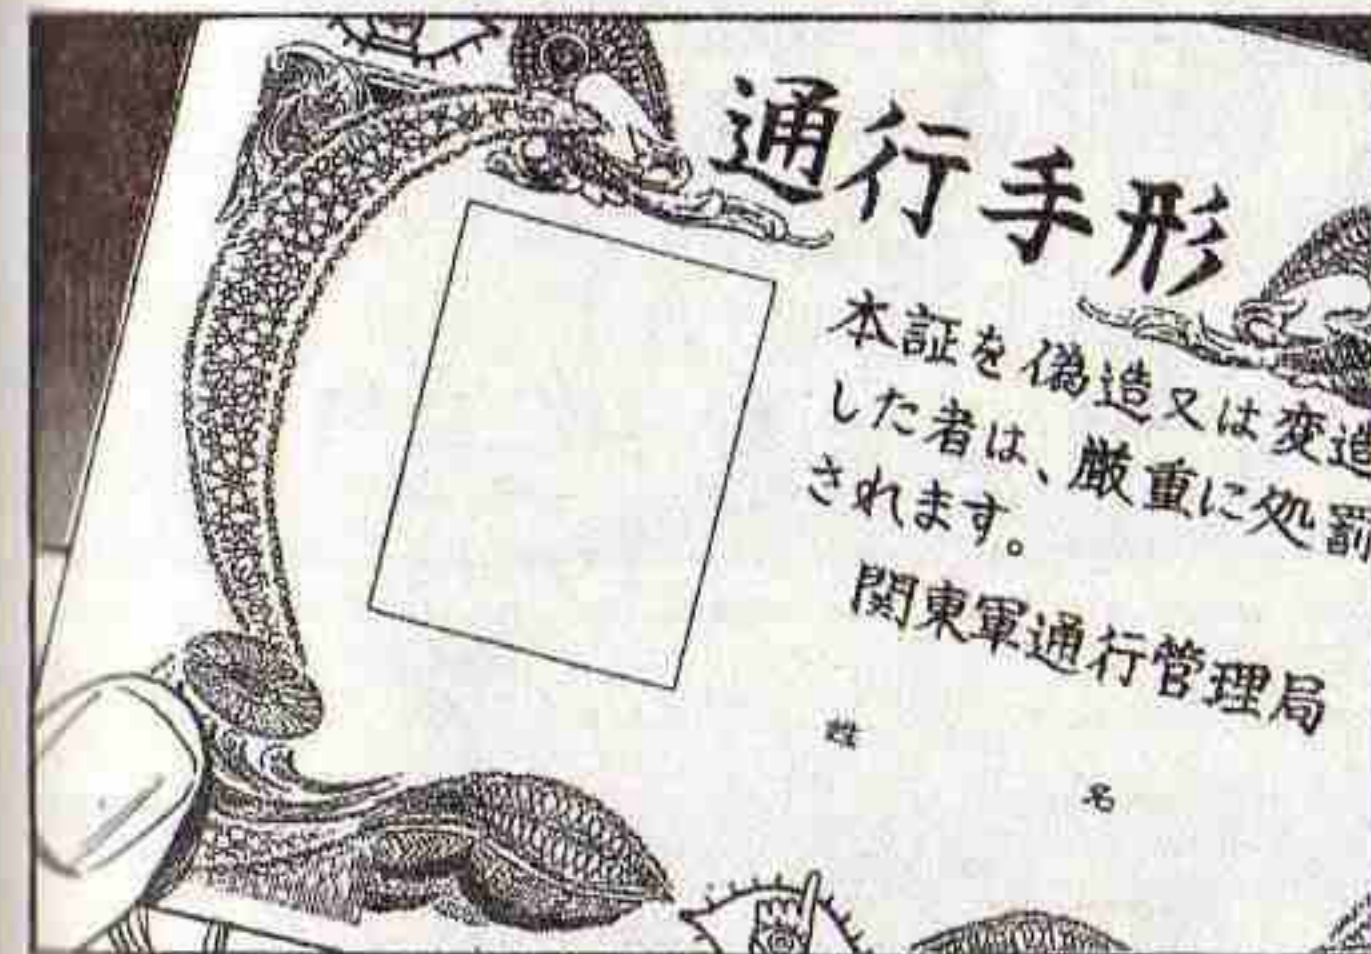 通行手形
本証を偽造又は変造
した者は、厳重に処罰
されます。
関東軍通行管理局
姓
名